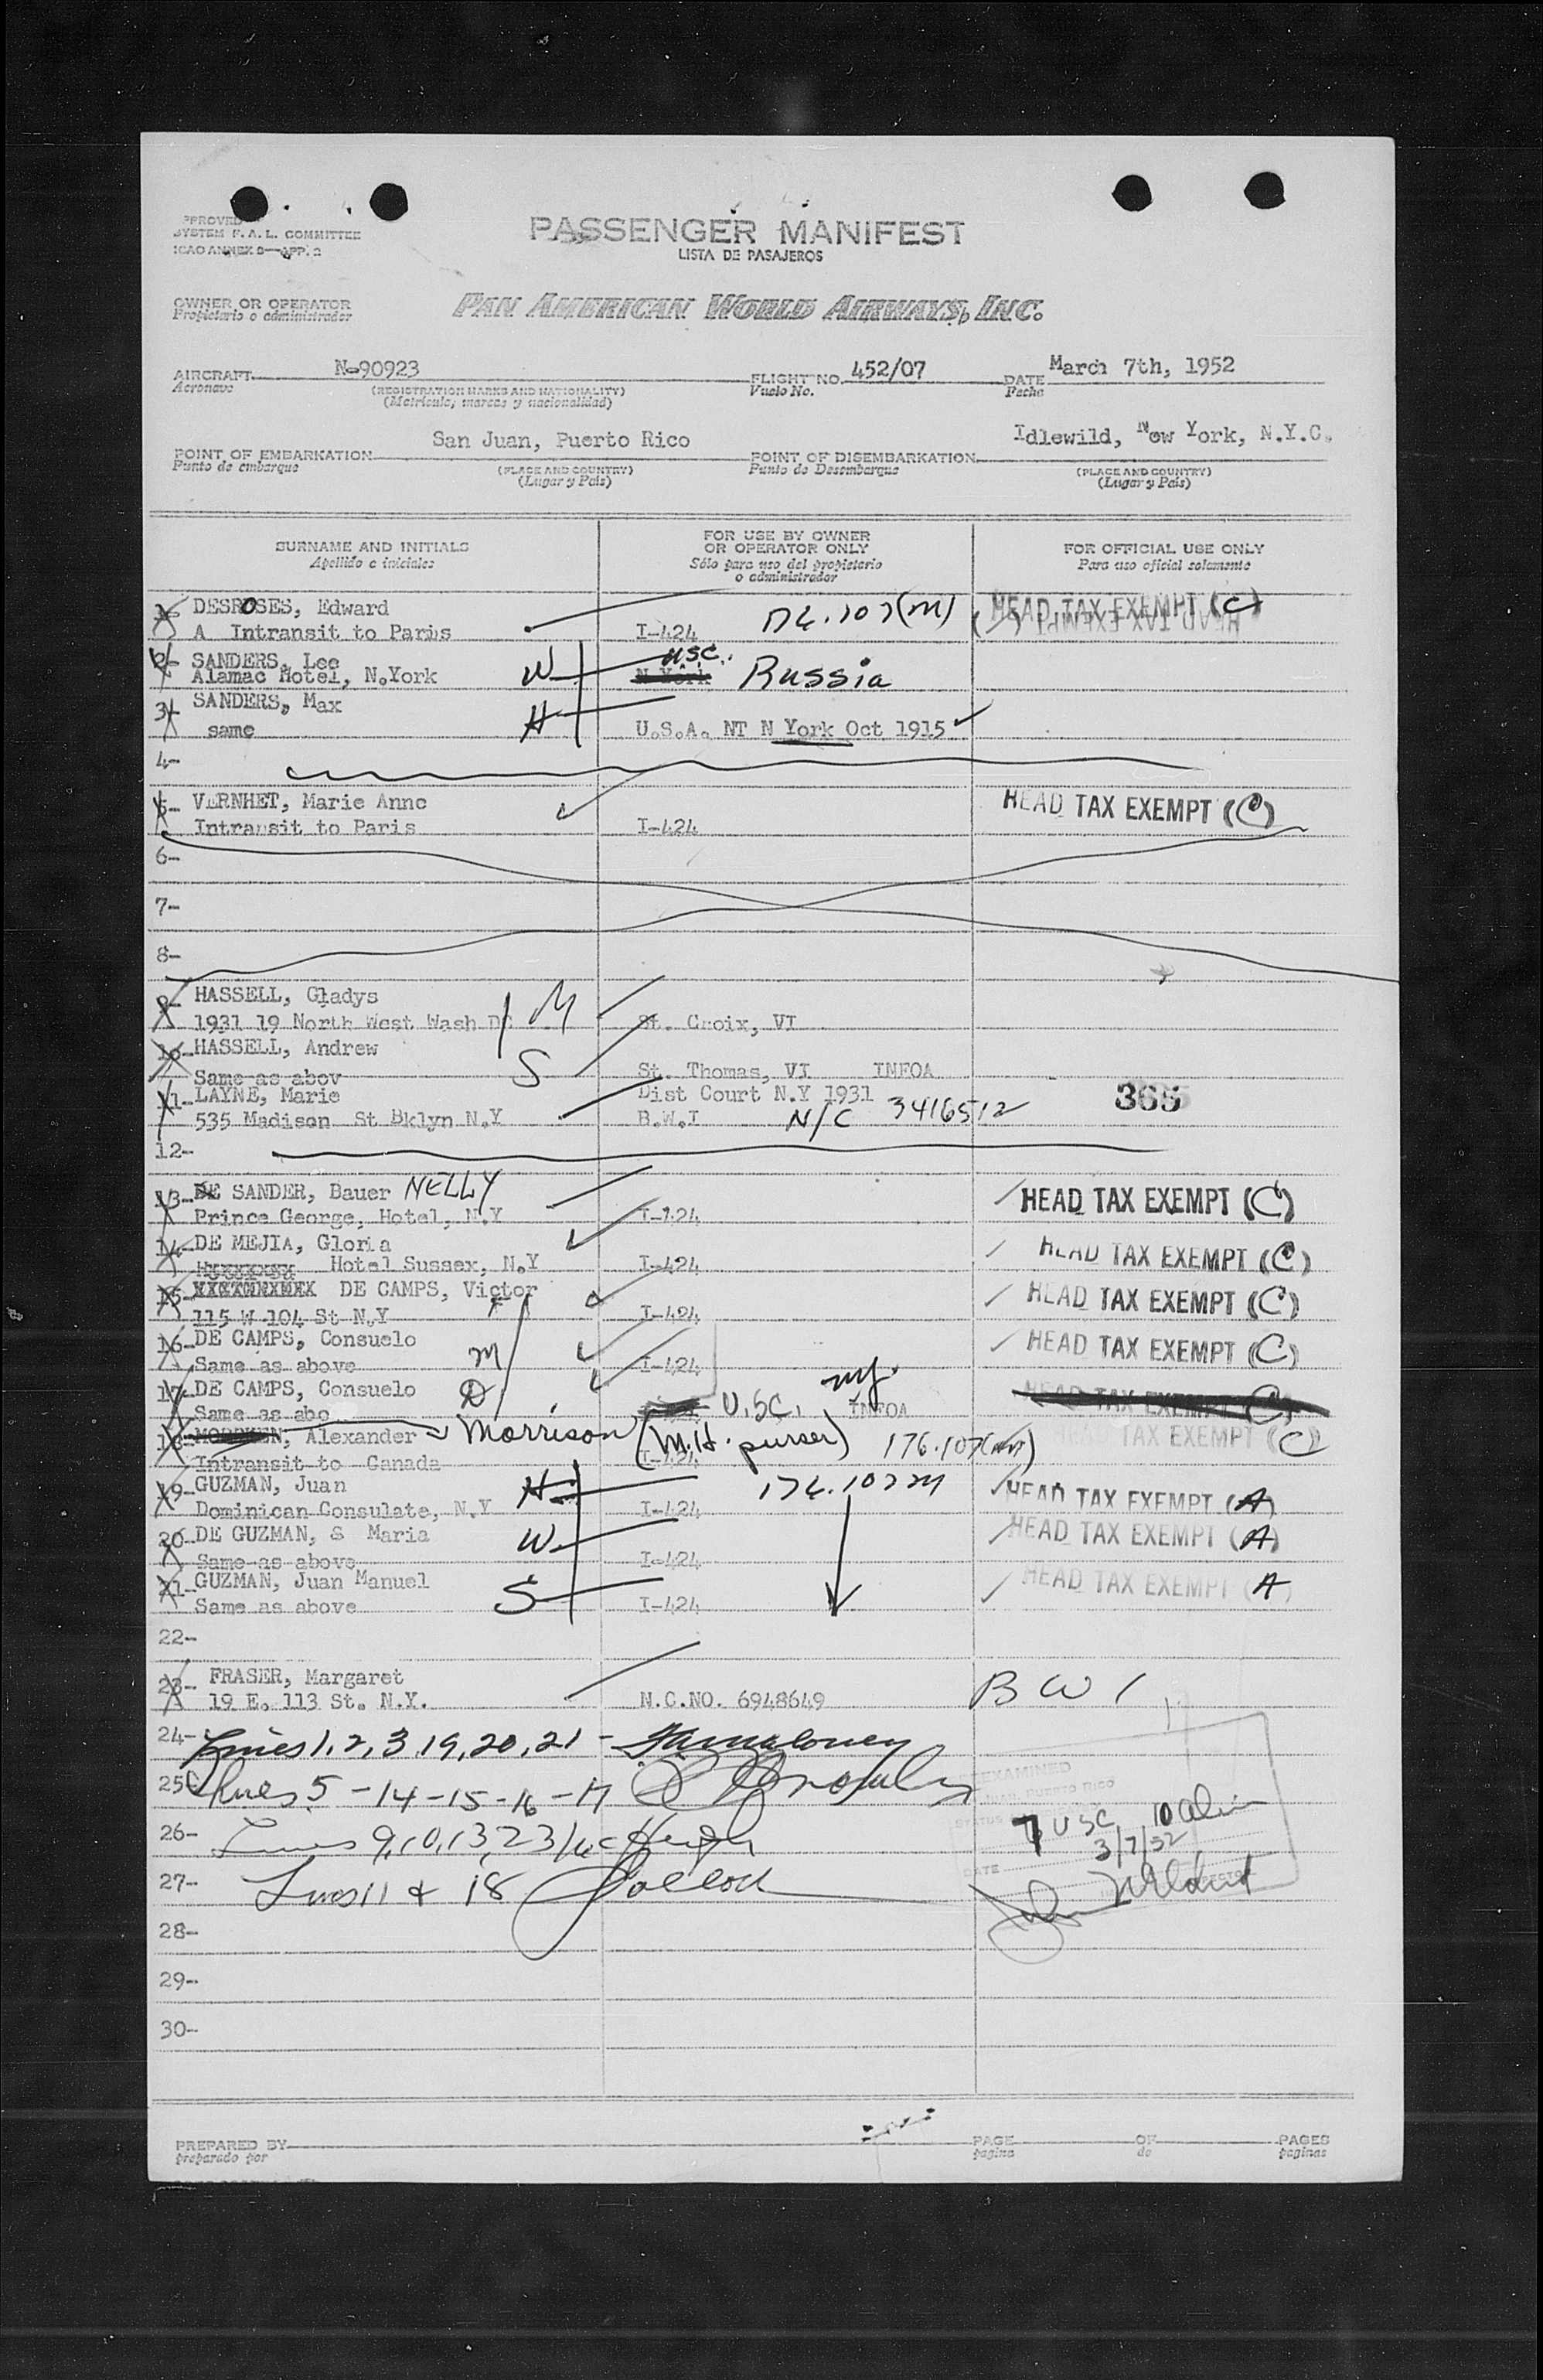 PASSENGER MANIFEST
LISTA DE PASAJEROS
SYSTEM F. A. L. COMMITTEE
ICAO ANNEX 9—APP. 2
OWNER OR OPERATOR
Propietario o administrador
PAN AMERICAN WORLD AIRWAYS, INC.
AIRCRAFT N-90923 FLIGHT NO. 452/07 DATE March 7th, 1952
Aeronave (REGISTRATION MARKS AND NATIONALITY) Vuelo No. Fecha
(Matricula, marcas y nacionalidad)
San Juan, Puerto Rico Idlewild, New York, N.Y.C.
POINT OF EMBARKATION POINT OF DISEMBARKATION
Punto de embarque (PLACE AND COUNTRY) Punto de Desembarque (PLACE AND COUNTRY)
(Lugar y País) (Lugar y País)
SURNAME AND INITIALS FOR USE BY OWNER OR OPERATOR ONLY FOR OFFICIAL USE ONLY
Apellido e iniciales Sólo para uso del propietario o administrador Para uso oficial solamente
DESROSES, Edward HEAD TAX EXEMPT (C)
A Intransit to Paris I-424
2- SANDERS, Lee USC.
Alamac Hotel, N.York W N York Russia
3- SANDERS, Max
same H U.S.A. NT N York Oct 1915
4-
5- VERNHET, Marie Anne HEAD TAX EXEMPT (C)
Intransit to Paris I-424
6-
7-
8-
9- HASSELL, Gladys M
1931 19 North West Wash DC St. Croix, VI
10- HASSELL, Andrew S
Same as abov St. Thomas, VI INFOA
11- LAYNE, Marie Dist Court N.Y 1931 365
535 Madison St Bklyn N.Y B.W.I N/C 3416512
12-
13- DE SANDER, Bauer NELLY HEAD TAX EXEMPT (C)
Prince George, Hotel, N.Y I-424
14- DE MEJIA, Gloria HEAD TAX EXEMPT (C)
Hotel Sussex, N.Y I-424
15- DE CAMPS, Victor HEAD TAX EXEMPT (C)
115 W 104 St N.Y I-424
16- DE CAMPS, Consuelo HEAD TAX EXEMPT (C)
Same as above M I-424
17- DE CAMPS, Consuelo D HEAD TAX EXEMPT (C)
Same as abo U.SC. INFOA
18- Alexander Morrison (M.H. purser) 176.107(m) HEAD TAX EXEMPT (C)
Intransit to Canada I-424
19- GUZMAN, Juan H HEAD TAX EXEMPT (A)
Dominican Consulate, N.Y I-424
20- DE GUZMAN, S Maria W HEAD TAX EXEMPT (A)
Same as above I-424
21- GUZMAN, Juan Manuel S HEAD TAX EXEMPT (A)
Same as above I-424
22-
23- FRASER, Margaret
19 E. 113 St. N.Y. N.C.NO. 6948649 BWI
24- Lines 1,2,3,19,20,21 -
25- Lines 5-14-15-16-17
26- Lines 9,10,13,23 7 USC 10 Alien
3/7/52
27- Lines 11 & 18
EXAMINED
PUERTO RICO
DATE
28-
29-
30-
PREPARED BY PAGE OF PAGES
preparado por pagina de paginas